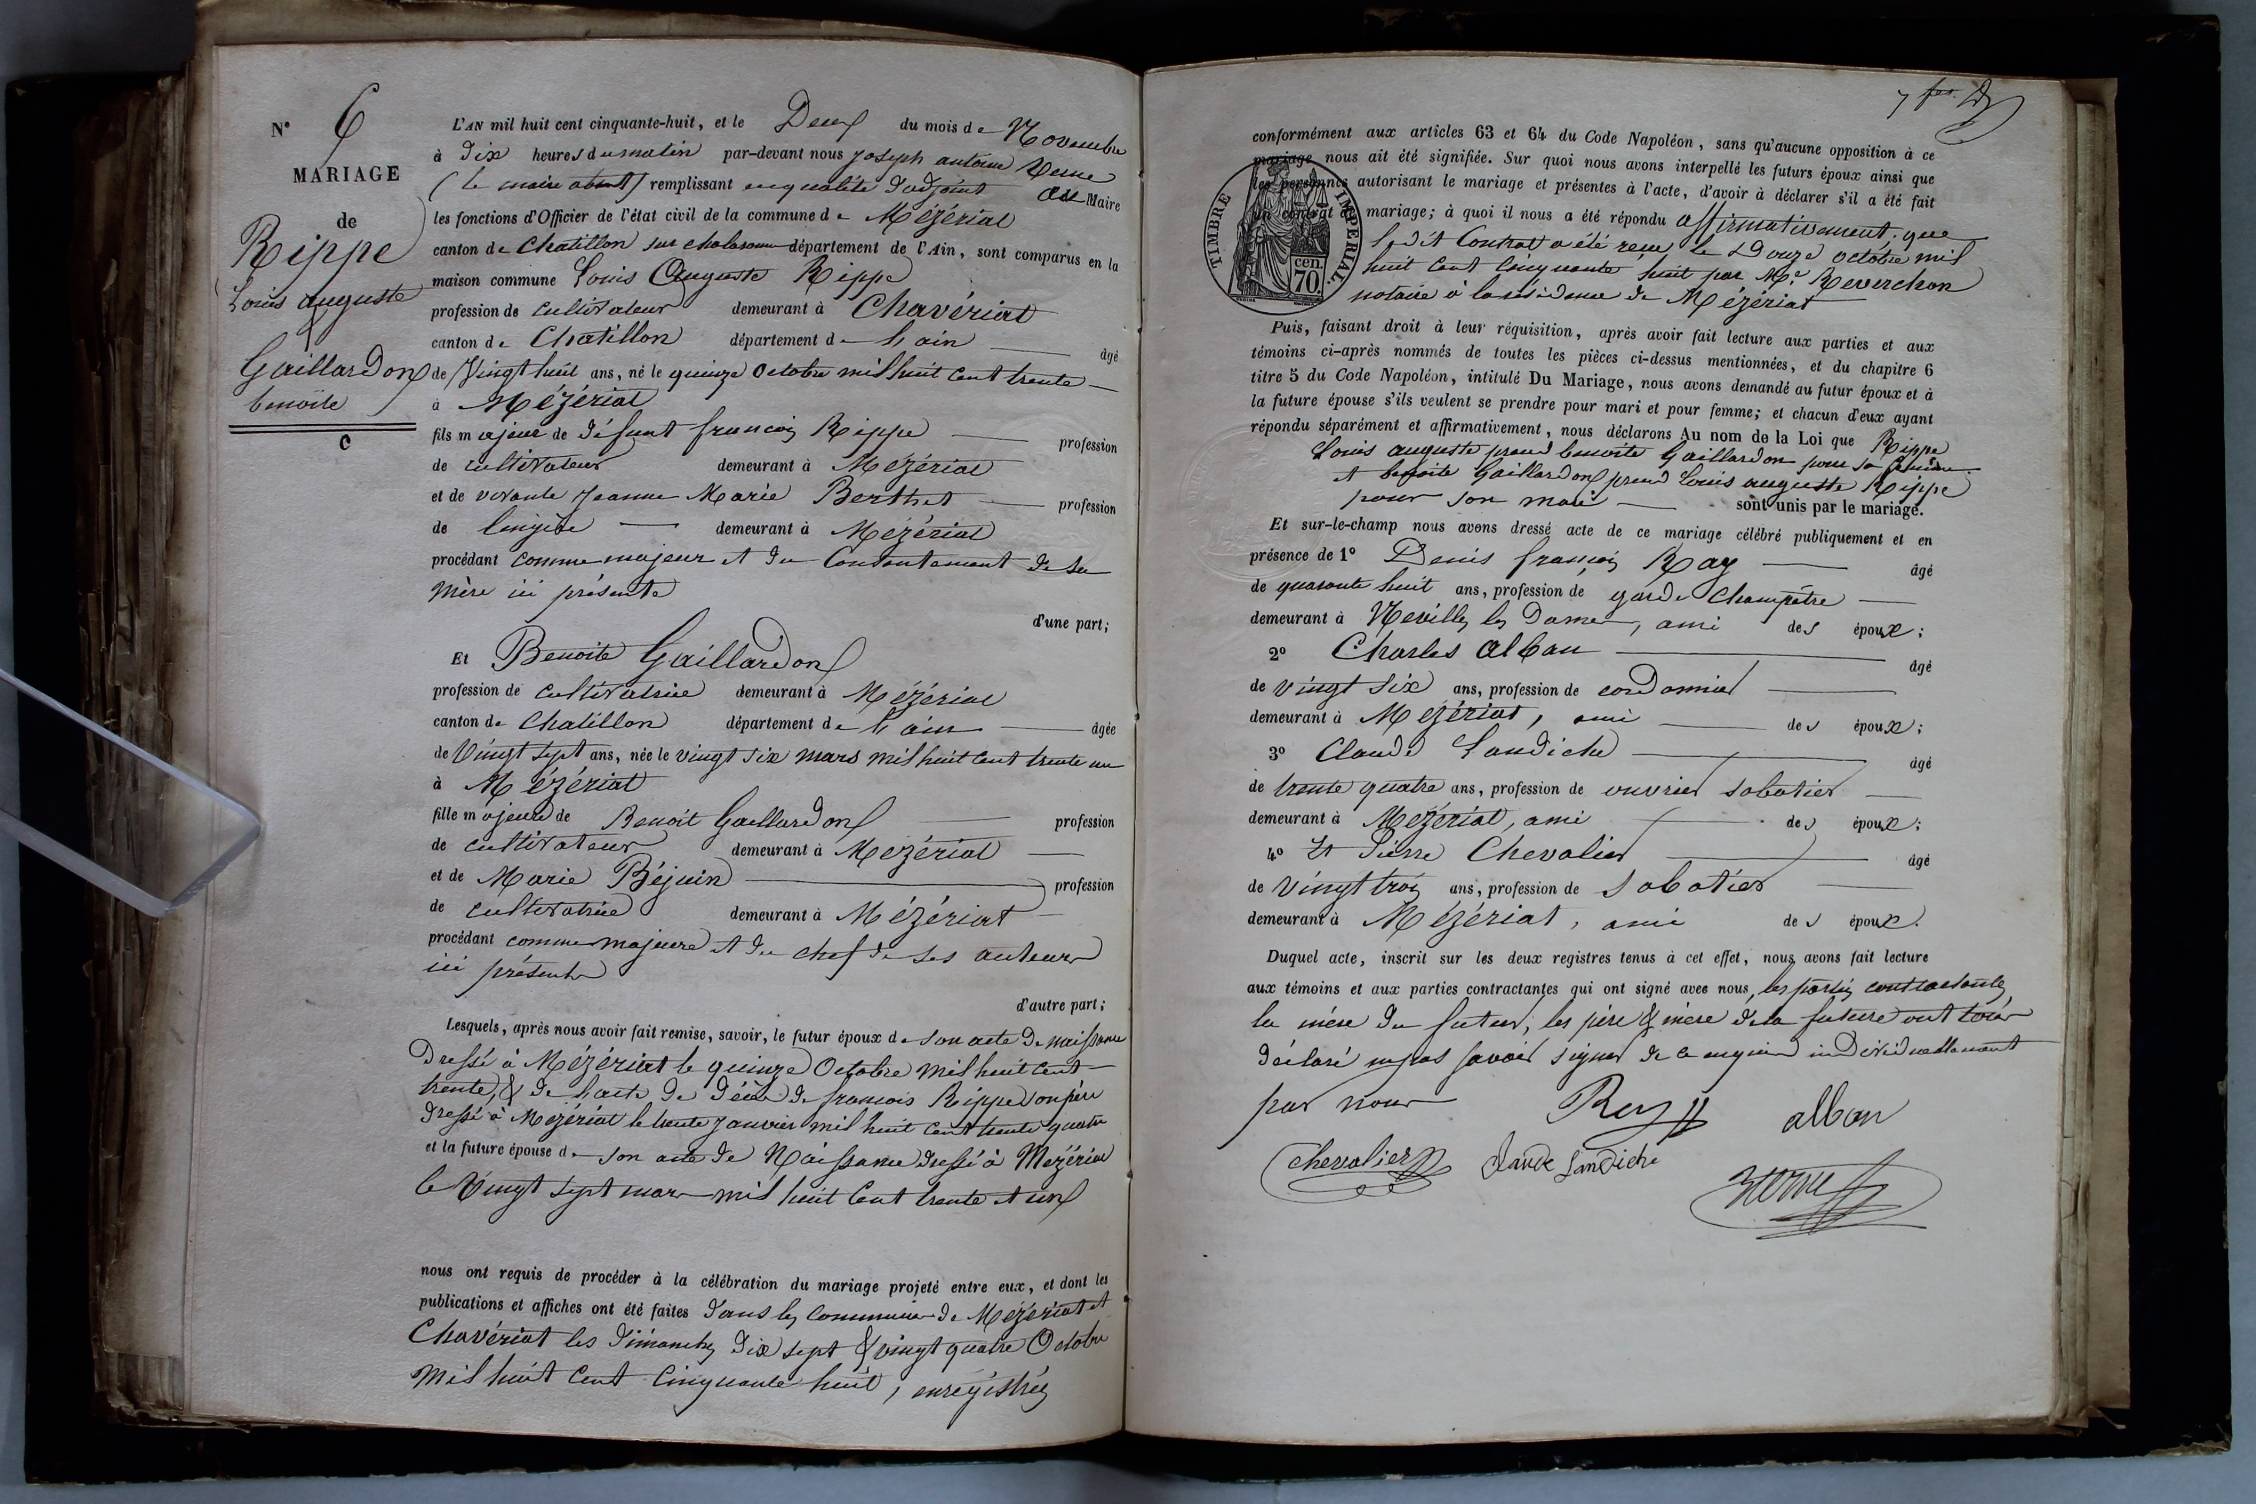 N° 6
MARIAGE
de
Rippe
Louis auguste
&
Gaillardon
benoite
C
L'AN mil huit cent cinquante-huit, et le Deux du mois de Novembre
à Dix heures du matin par-devant nous Joseph antoine Verne
(le maire absent) remplissant en qualité d'adjoint au Maire
les fonctions d'Officier de l'état civil de la commune de Mézériat
canton de Chatillon sur chalaronne département de l'Ain, sont comparus en la
maison commune Louis Auguste Rippe
profession de cultivateur demeurant à Chavériat
canton de Chatillon département de l'ain âgé
de Vingt huit ans, né le quinze Octobre mil huit cent trente
à Mézériat
fils majeur de défunt françois Rippe profession
de cultivateur demeurant à Mézériat
et de vivante Jeanne Marie Berthet profession
de lingère demeurant à Mézériat
procédant comme majeur et du Consentement de sa
mère ici présente
d'une part;
Et Benoite Gaillardon
profession de cultivatrice demeurant à Mézériat
canton de Chatillon département de l'ain âgée
de Vingt sept ans, née le vingt six mars mil huit cent trente un
à Mézériat
fille majeure de Benoit Gaillardon profession
de cultivateur demeurant à Mézériat
et de Marie Béjuin profession
de cultivatrice demeurant à Mézériat
procédant comme majeure et du chef de ses auteurs
ici présents
d'autre part;
Lesquels, après nous avoir fait remise, savoir, le futur époux de son acte de naissance
Dressé à Mézériat le quinze Octobre mil huit cent
trente, & de l'acte de décès de francois Rippe son père
dressé à Mézériat le trente Janvier mil huit cent trente quatre
et la future épouse de son acte de Naissance dressé à Mézériat
le Vingt sept mars mil huit cent trente et un
nous ont requis de procéder à la célébration du mariage projeté entre eux, et dont les
publications et affiches ont été faites dans les communes de Mézériat et
Chavériat les dimanches dix sept & vingt quatre Octobre
mil huit cent cinquante huit, enregistrées
conformément aux articles 63 et 64 du Code Napoléon, sans qu'aucune opposition à ce
mariage nous ait été signifiée. Sur quoi nous avons interpellé les futurs époux ainsi que
les personnes autorisant le mariage et présentes à l'acte, d'avoir à déclarer s'il a été fait
un contrat de mariage; à quoi il nous a été répondu affirmativement, que
ledit Contrat a été reçu le Douze octobre mil
huit cent cinquante huit par Me. Reverchon
notaire à la résidence de Mézériat
TIMBRE IMPERIAL.
70 cen.
Puis, faisant droit à leur réquisition, après avoir fait lecture aux parties et aux
témoins ci-après nommés de toutes les pièces ci-dessus mentionnées, et du chapitre 6
titre 5 du Code Napoléon, intitulé Du Mariage, nous avons demandé au futur époux et à
la future épouse s'ils veulent se prendre pour mari et pour femme; et chacun d'eux ayant
répondu séparément et affirmativement, nous déclarons Au nom de la Loi que Rippe
Louis auguste prend benoite Gaillardon pour sa femme
et benoite Gaillardon prend Louis auguste Rippe
pour son mari sont unis par le mariage.
Et sur-le-champ nous avons dressé acte de ce mariage célébré publiquement et en
présence de 1° Denis françois Ray âgé
de quarante huit ans, profession de garde Champêtre
demeurant à Neville les Dames, ami des époux;
2° Charles Alban âgé
de vingt six ans, profession de cordonnier
demeurant à Mézériat, ami des époux;
3° Claude Landiche âgé
de trente quatre ans, profession de ouvrier sabotier
demeurant à Mézériat, ami des époux;
4° Et Pierre Chevalier âgé
de vingt trois ans, profession de sabotier
demeurant à Mézériat, ami des époux.
Duquel acte, inscrit sur les deux registres tenus à cet effet, nous avons fait lecture
aux témoins et aux parties contractantes qui ont signé avec nous, les parties contractantes
la mère du futur, les père & mère de la future ont tous
déclaré ne pas savoir signer de ce enquis individuellement
par nous
Rey alban
Chevalier Claude Landiche
Verne